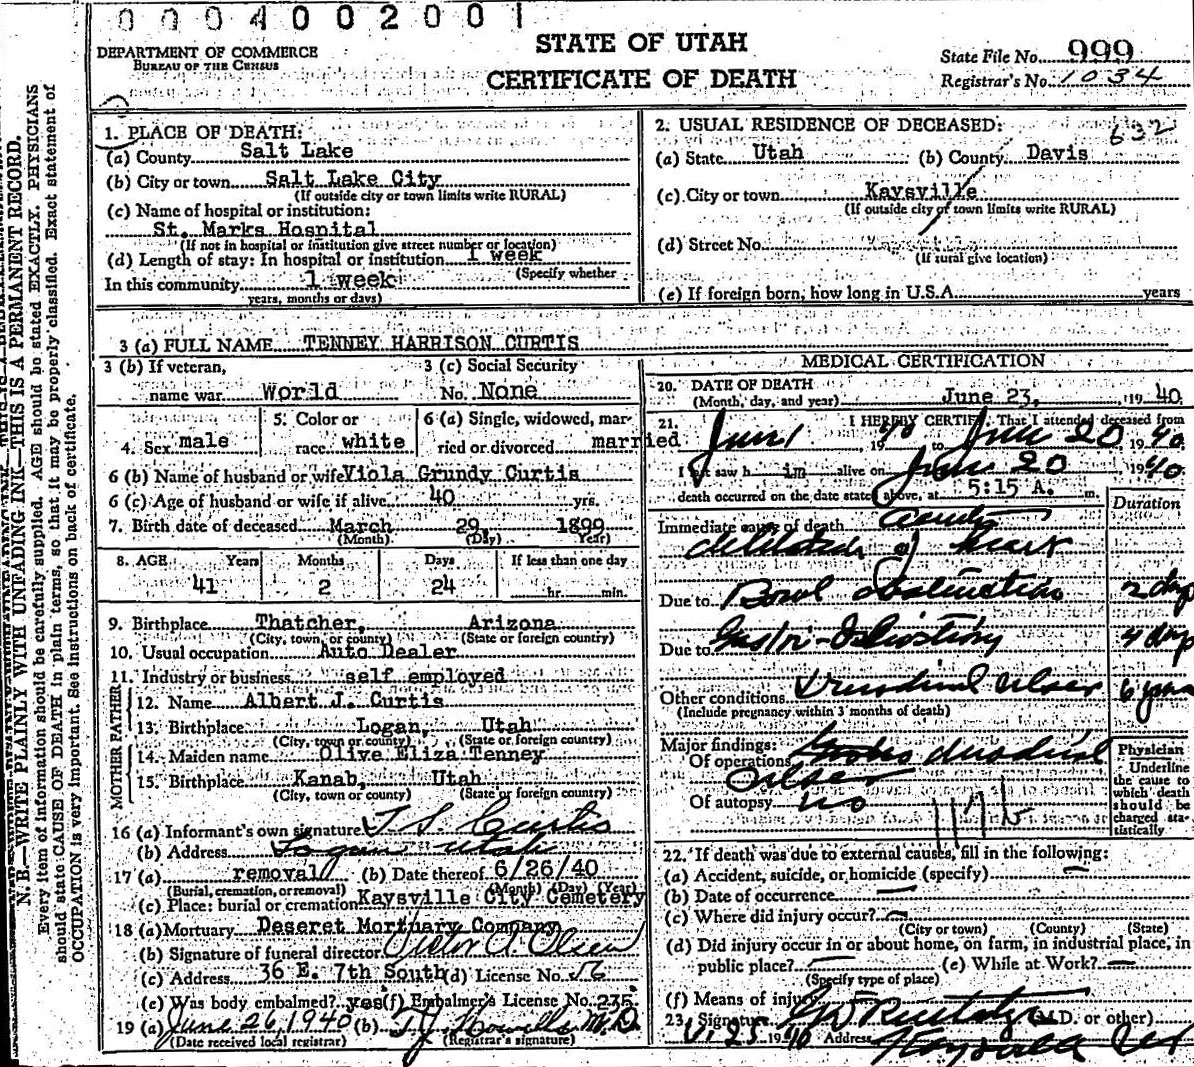 0004002001
DEPARTMENT OF COMMERCE
BUREAU OF THE CENSUS
STATE OF UTAH
CERTIFICATE OF DEATH
State File No. 999
Registrar's No. 1034
N. B.—WRITE PLAINLY WITH UNFADING INK—THIS IS A PERMANENT RECORD.
Every item of information should be carefully supplied. AGE should be stated EXACTLY. PHYSICIANS
should state CAUSE OF DEATH in plain terms, so that it may be properly classified. Exact statement of
OCCUPATION is very important. See instructions on back of certificate.
1. PLACE OF DEATH:
(a) County Salt Lake
(b) City or town Salt Lake City
(If outside city or town limits write RURAL)
(c) Name of hospital or institution:
St. Marks Hospital
(If not in hospital or institution give street number or location)
(d) Length of stay: In hospital or institution 1 week
(Specify whether
In this community 1 week
years, months or days)
2. USUAL RESIDENCE OF DECEASED:
632
(a) State Utah (b) County Davis
(c) City or town Kaysville
(If outside city or town limits write RURAL)
(d) Street No.
(If rural give location)
(e) If foreign born, how long in U.S.A. years
3 (a) FULL NAME TENNEY HARRISON CURTIS
3 (b) If veteran,
name war World
3 (c) Social Security
No. None
4. Sex male
5. Color or
race white
6 (a) Single, widowed, mar-
ried or divorced married
6 (b) Name of husband or wife Viola Grundy Curtis
6 (c) Age of husband or wife if alive 40 yrs.
7. Birth date of deceased March 29, 1899
(Month) (Day) Year)
8. AGE Years Months Days If less than one day
41 2 24 hr. min.
9. Birthplace Thatcher, Arizona
(City, town, or county) (State or foreign country)
10. Usual occupation Auto Dealer
11. Industry or business self employed
FATHER
12. Name Albert J. Curtis
13. Birthplace Logan, Utah
(City, town or county) (State or foreign country)
MOTHER
14. Maiden name Olive Eliza Tenney
15. Birthplace Kanab, Utah
(City, town or county) (State or foreign country)
16 (a) Informant's own signature T. S. Curtis
(b) Address Logan Utah
17 (a) removal (b) Date thereof 6/26/40
(Burial, cremation, or removal) (Month) (Day) (Year)
(c) Place: burial or cremation Kaysville City Cemetery
18 (a) Mortuary Deseret Mortuary Company
(b) Signature of funeral director Victor A. Olsen
(c) Address 36 E. 7th South (d) License No. 12
(e) Was body embalmed? yes (f) Embalmer's License No. 235
19 (a) June 26, 1940 (b) T J Howells M.D.
(Date received local registrar) (Registrar's signature)
MEDICAL CERTIFICATION
20. DATE OF DEATH
(Month, day, and year) June 23, 1940
21. I HEREBY CERTIFY That I attended deceased from
June 1 1940 to June 20 1940
I last saw him alive on June 20 1940
death occurred on the date stated above, at 5:15 A. m.
Duration
Immediate cause of death acute
dilitation of heart
Due to Bowel obstruction 2 days
Due to 4 days
Other conditions Duodenal ulcer 6 years
(Include pregnancy within 3 months of death)
Major findings:
Of operations duodenal
Ulcer
Of autopsy no
117b
Physician
Underline
the cause to
which death
should be
charged sta-
tistically
22. If death was due to external causes, fill in the following:
(a) Accident, suicide, or homicide (specify) —
(b) Date of occurrence —
(c) Where did injury occur? —
(City or town) (County) (State)
(d) Did injury occur in or about home, on farm, in industrial place, in
public place? — (e) While at Work? —
(Specify type of place)
(f) Means of injury
23. Signature (M.D. or other)
1940 Address Kaysville